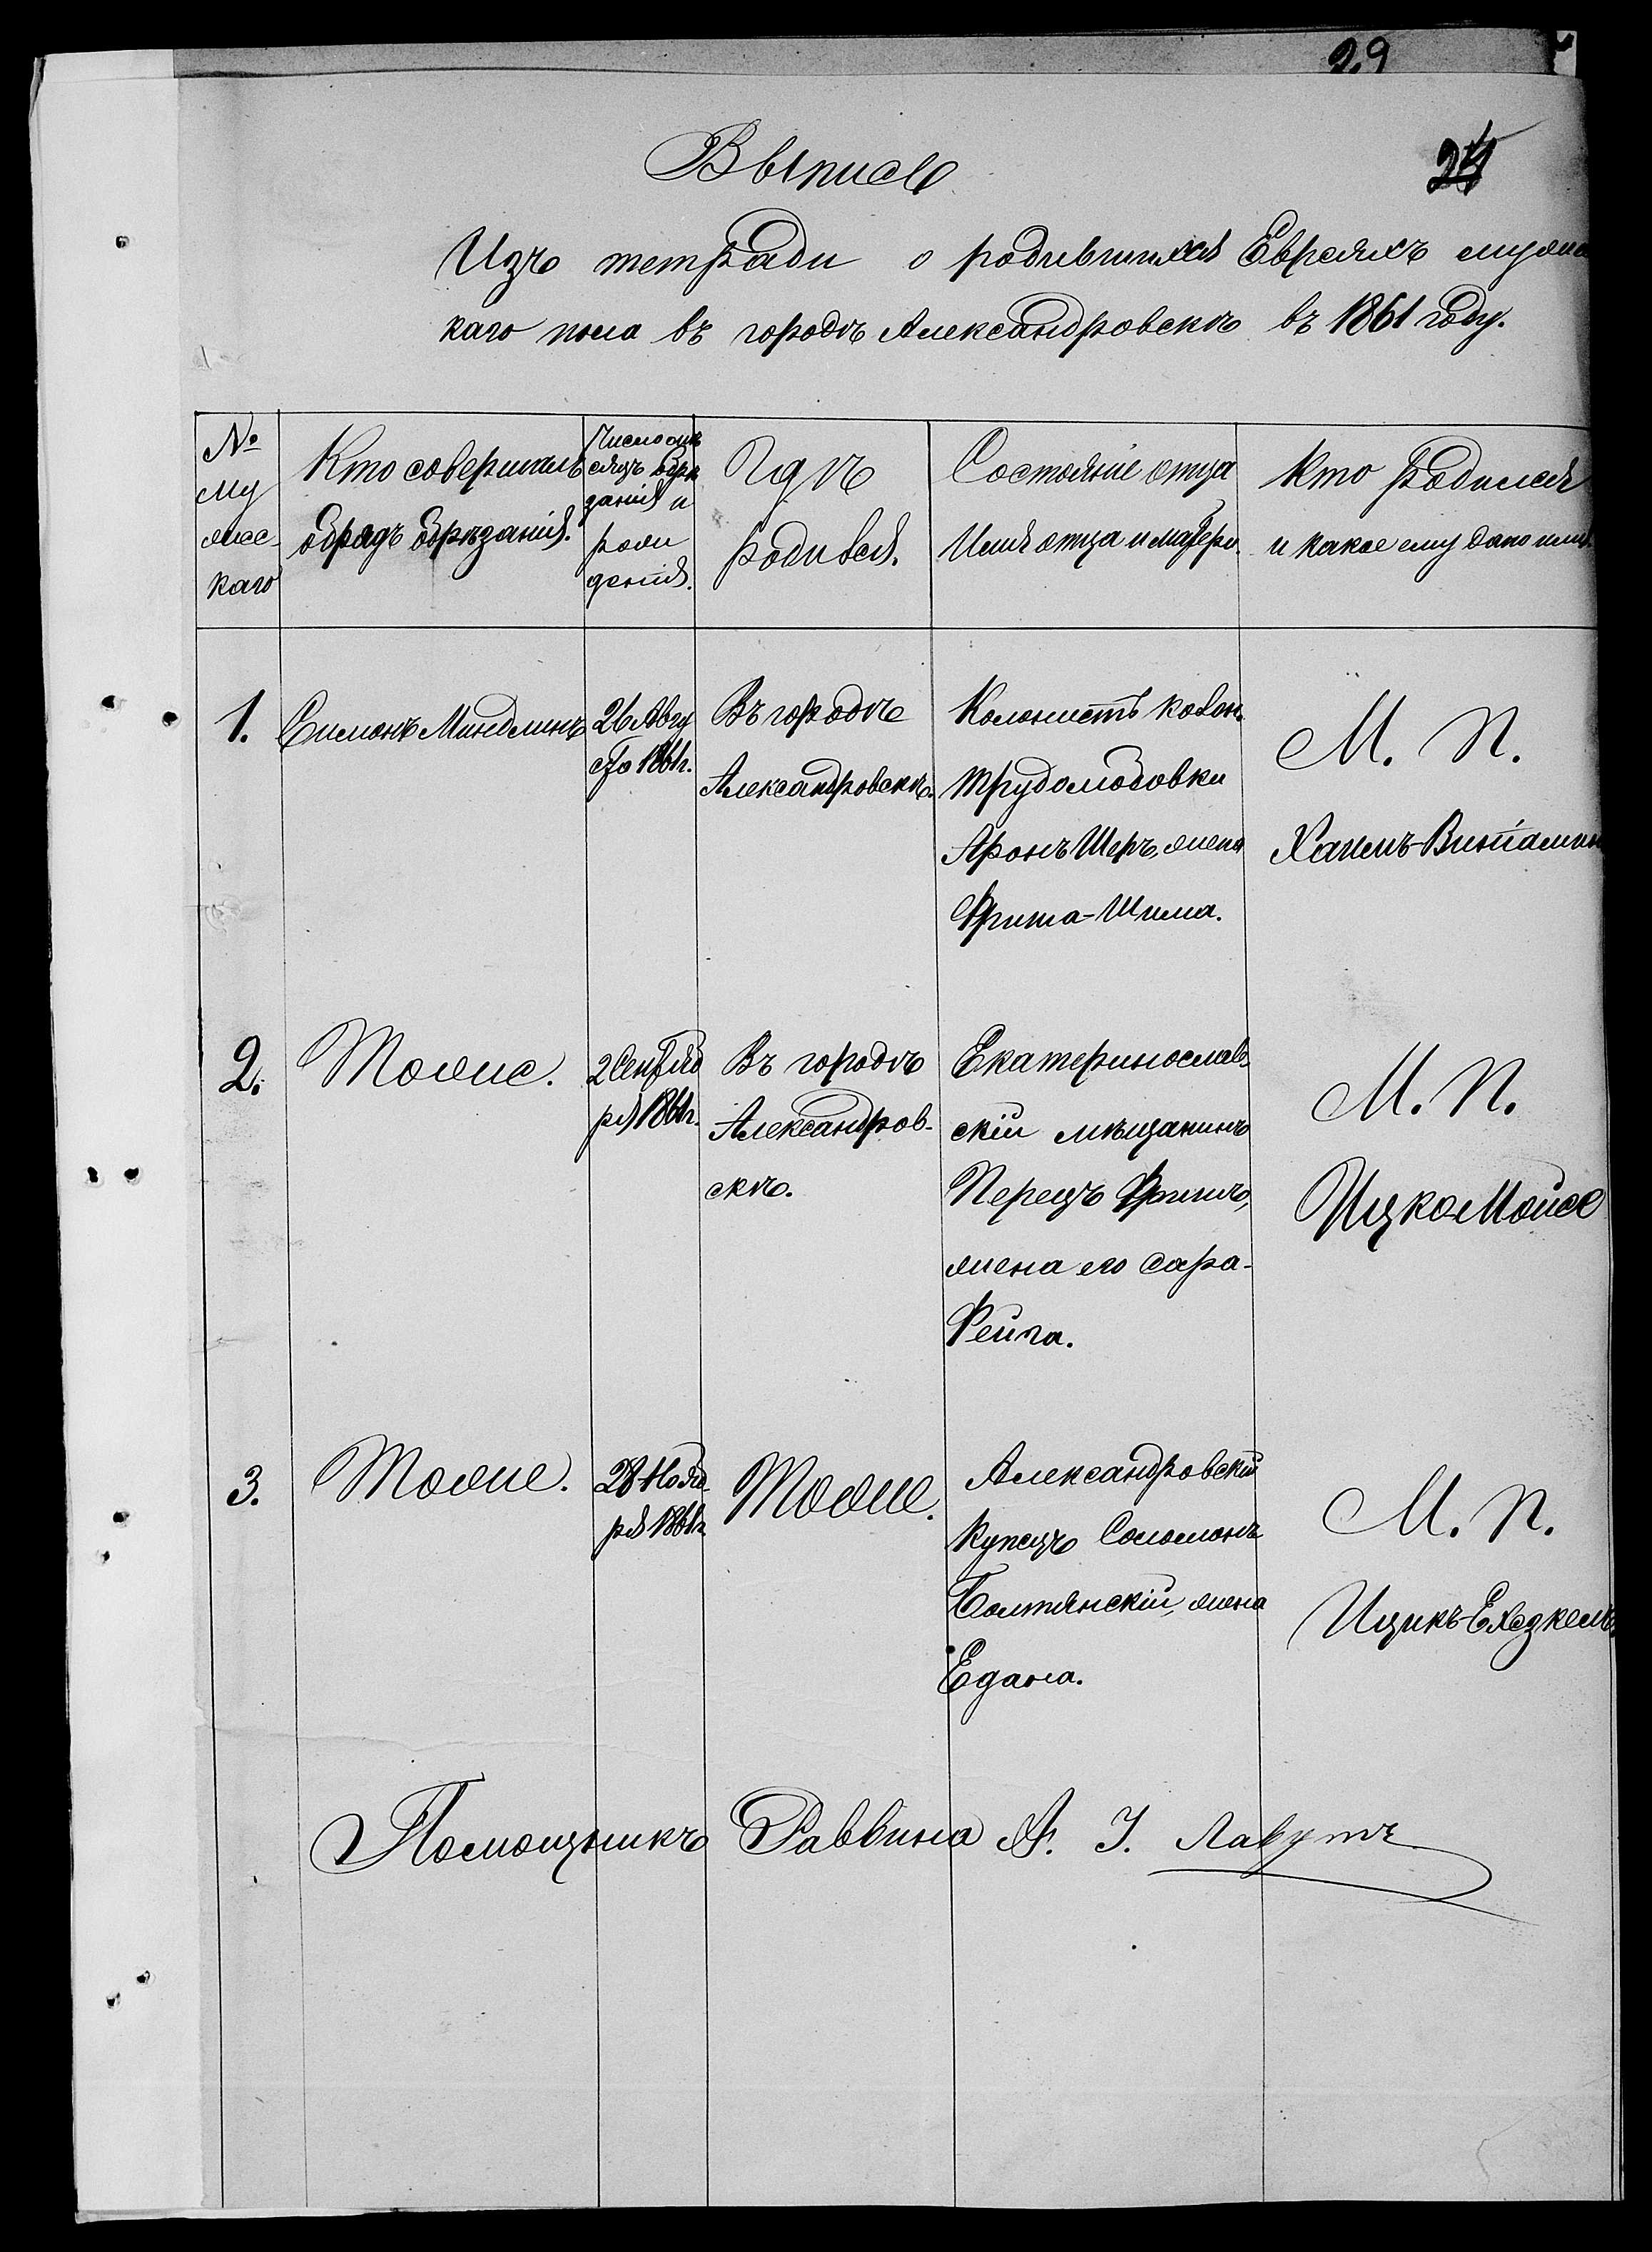 29
24
Выпись
Изъ тетради о родившихся Евреяхъ мужес
каго пола въ городѣ Александровскѣ въ 1861 году.
№
му
жес-
каго
Кто совершилъ
обрядъ обрѣзанія.
Число мѣ
сяцъ обрѣ
занія и
рож
денія.
Гдѣ
родился.
Состояніе отца
Имя отца и матери.
Кто родился
и какое ему дано имя.
1.
Симонъ Миндлинъ
26 Авгу
ста 1861 г.
Въ городѣ
Александровскѣ.
Колонистъ колон.
Трудолюбовки
Аронъ Шеръ, жена
Фрима-Шима.
М. П.
Хаимъ-Виніамин
2.
Тоже.
2 Сентяб
ря 1861 г.
Въ городѣ
Александров-
скѣ.
Екатеринослав-
скій мѣщанинъ
Перецъ Фринъ,
жена его Сара-
Фейга.
М. П.
Ицко Мойсе
3.
Тоже.
28 Нояб-
ря 1861 г.
Тоже.
Александровскій
купецъ Соломонъ
Болтянскій, жена
Ездана.
М. П.
Ицикъ-Ехезкель.
Помощникъ Раввина А. I. Лавутъ